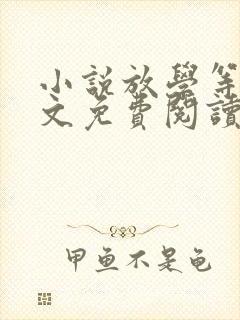 小説放學等
文免費閱讀
甲魚不是龟